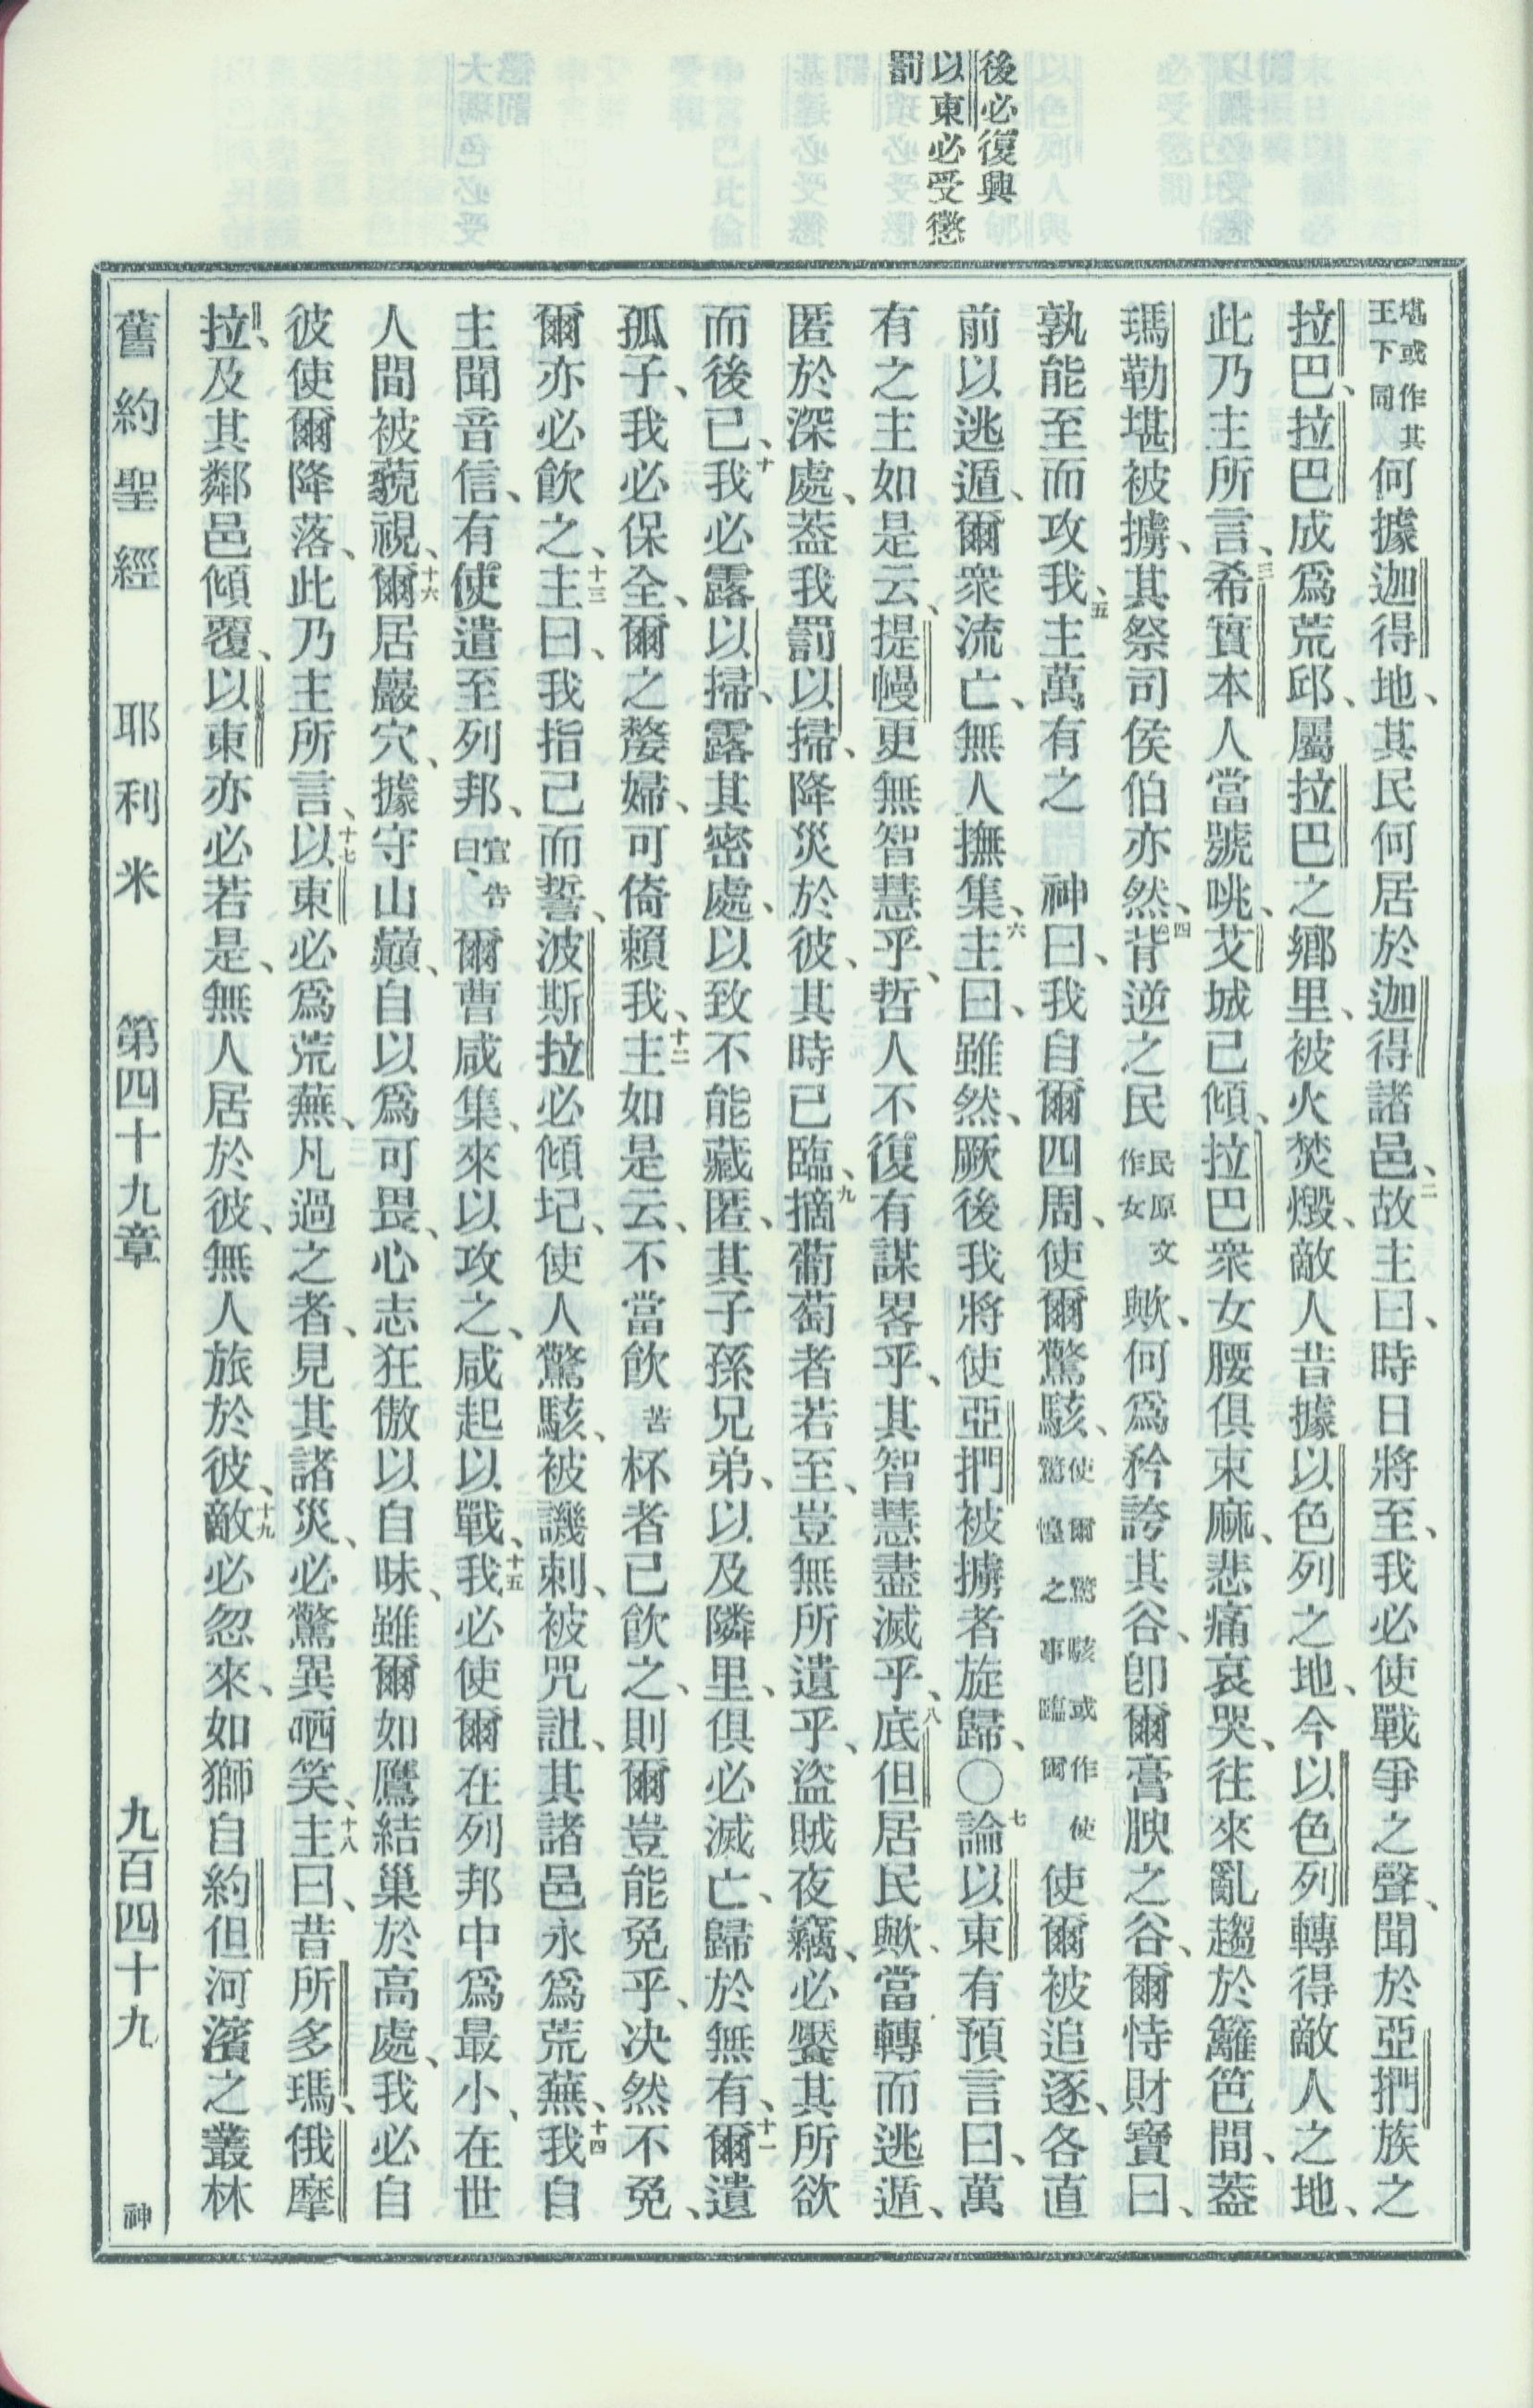 後必復興
以東必受懲
罰
堪或作其王下同何據迦得地、其民何居於迦得諸邑、二故主曰、時日將至、我必使戰爭之聲、聞於亞捫族之
拉巴、拉巴成爲荒邱、屬拉巴之鄉里、被火焚燬、敵人昔據以色列之地、今以色列轉得敵人之地、
此乃主所言、三希實本人當號咷、艾城已傾、拉巴衆女腰俱束麻、悲痛哀哭、往來亂趨於籬笆間、蓋
瑪勒堪被擄、其祭司侯伯亦然、四背逆之民民原文作女歟、何爲矜誇其谷、卽爾膏腴之谷、爾恃財寶曰、
孰能至而攻我、五主萬有之 神曰、我自爾四周、使爾驚駭、使爾驚駭或作使驚惶之事臨爾使爾被追逐、各直
前以逃遁、爾衆流亡、無人撫集、六主曰、雖然、厥後我將使亞捫被擄者旋歸、〇七論以東有預言曰、萬
有之主如是云、提幔更無智慧乎、哲人不復有謀畧乎、其智慧盡滅乎、八底但居民歟、當轉而逃遁、
匿於深處、蓋我罰以掃、降災於彼、其時已臨、九摘葡萄者若至、豈無所遺乎、盜賊夜竊、必饜其所欲
而後已、十我必露以掃、露其密處、以致不能藏匿、其子孫兄弟、以及隣里、俱必滅亡、歸於無有、十一爾遺
孤子、我必保全、爾之嫠婦、可倚賴我、十二主如是云、不當飲苦杯者已飲之、則爾豈能免乎、決然不免、
爾亦必飲之、十三主曰、我指己而誓、波斯拉必傾圮、使人驚駭、被譏刺、被咒詛、其諸邑永爲荒蕪、十四我自
主聞音信、有使遣至列邦、宣告曰、爾曹咸集、來以攻之、咸起以戰、十五我必使爾在列邦中爲最小、在世
人間被藐視、十六爾居巖穴、據守山巔、自以爲可畏、心志狂傲以自昧、雖爾如鷹結巢於高處、我必自
彼使爾降落、此乃主所言、十七以東必爲荒蕪、凡過之者、見其諸災、必驚異哂笑、十八主曰、昔所多瑪、俄摩
拉、及其鄰邑傾覆、以東亦必若是、無人居於彼、無人旅於彼、十九敵必忽來、如獅自約但河濱之叢林
舊約聖經 耶利米 第四十九章 九百四十九 神